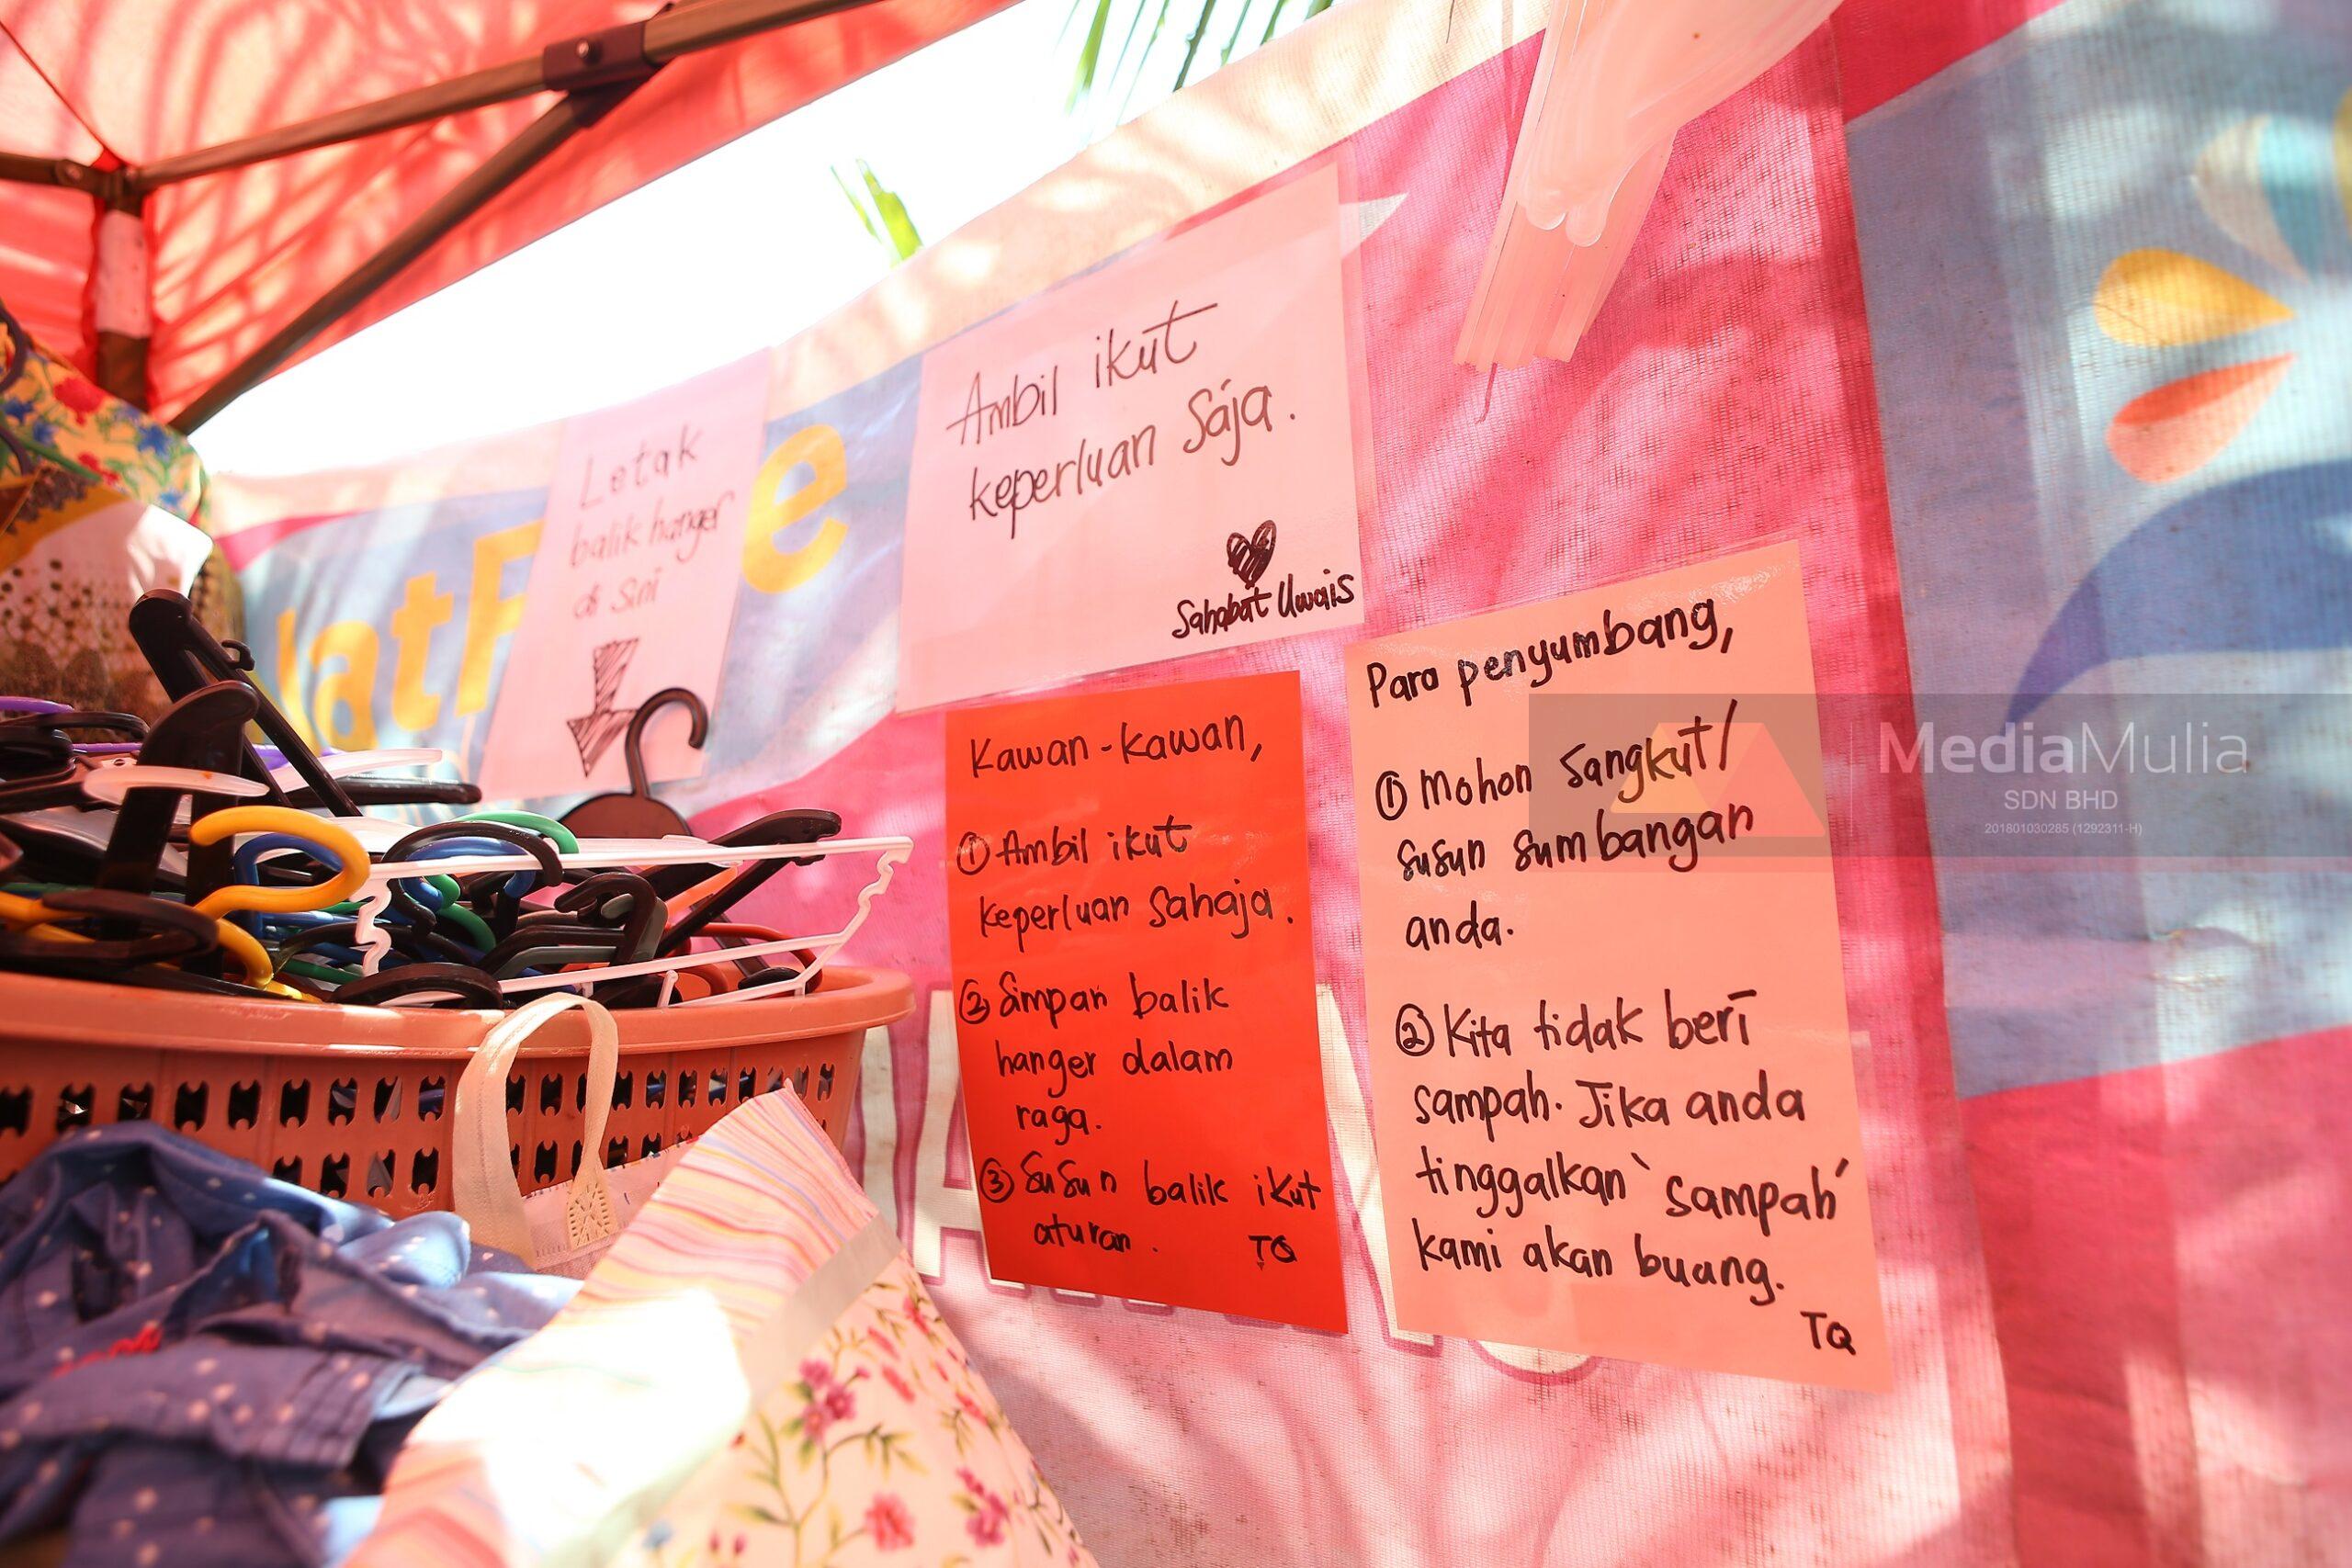 Letak
balik hanger
di sini
Ambil ikut
keperluan saja.
Sahabat Uwais
Kawan-kawan,
① Ambil ikut
keperluan sahaja.
② Simpan balik
hanger dalam
raga.
③ Susun balik ikut
aturan.
TQ
Para penyumbang,
① Mohon sangkut/
susun sumbangan
anda.
② Kita tidak beri
sampah. Jika anda
tinggalkan 'sampah'
kami akan buang.
TQ
MediaMulia
SDN BHD
201801030285 (1292311-H)